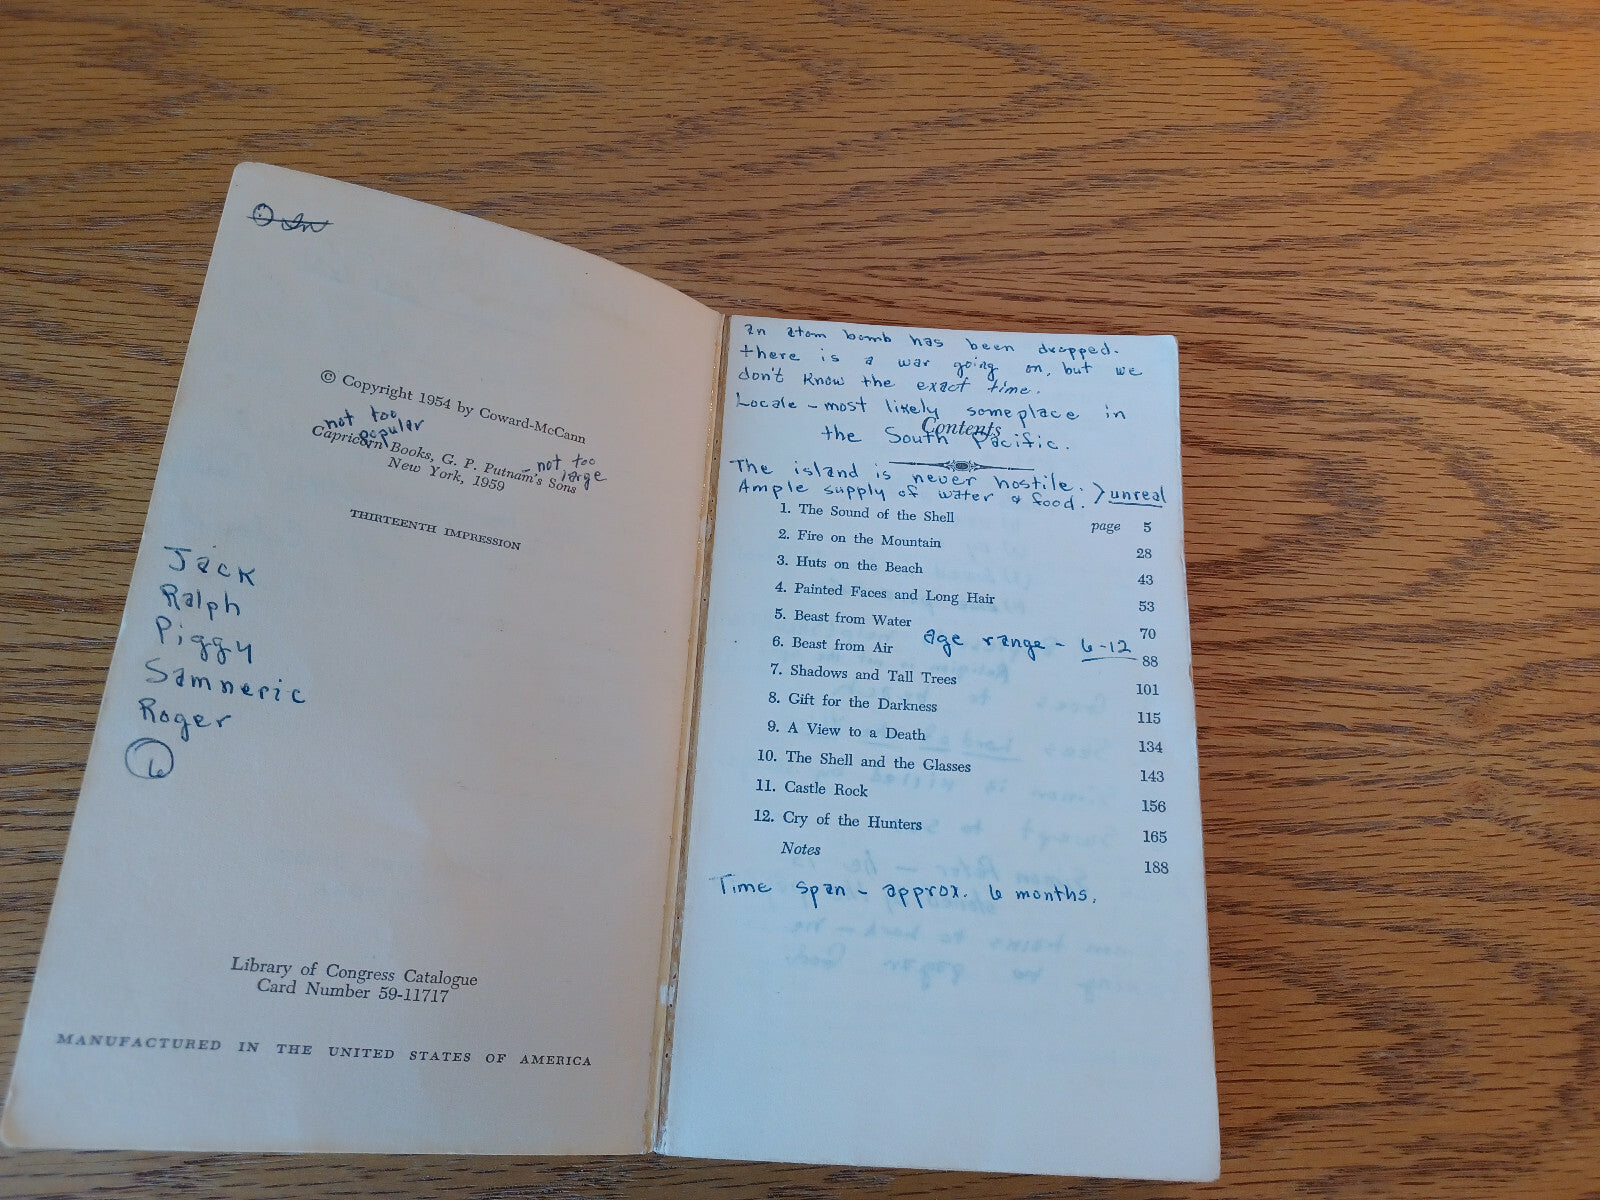 © Copyright 1954 by Coward-McCann
not too
popular
Capricorn Books, G. P. Putnam's Sons
not too
large
New York, 1959
THIRTEENTH IMPRESSION
Jack
Ralph
Piggy
Samneric
Roger
6
Library of Congress Catalogue
Card Number 59-11717
MANUFACTURED IN THE UNITED STATES OF AMERICA
an atom bomb has been dropped.
there is a war going on, but we
don't know the exact time.
Locale - most likely someplace in
the South Pacific.
Contents
The island is never hostile.
Ample supply of water & food. > unreal
1. The Sound of the Shell page 5
2. Fire on the Mountain 28
3. Huts on the Beach 43
4. Painted Faces and Long Hair 53
5. Beast from Water 70
age range - 6-12
6. Beast from Air 88
7. Shadows and Tall Trees 101
8. Gift for the Darkness 115
9. A View to a Death 134
10. The Shell and the Glasses 143
11. Castle Rock 156
12. Cry of the Hunters 165
Notes 188
Time span - approx. 6 months.